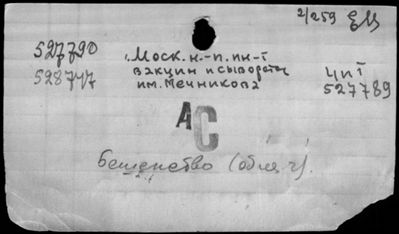 2/259 ЕМ
527790
528747
Моск. н.-и. ин-т
вакцин и сывороток
им. Мечникова
527789
АС
Бешенство (общ. ч).